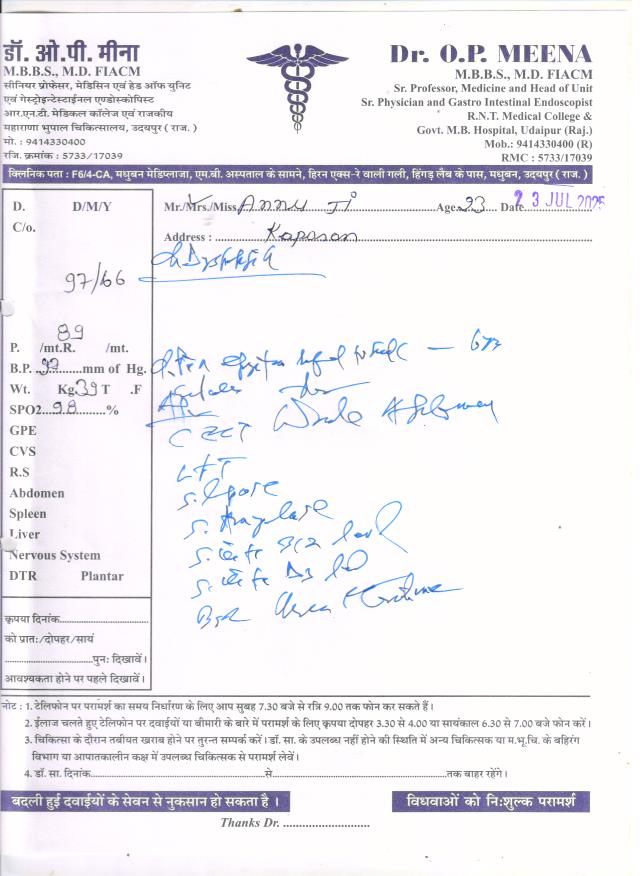 डॉ. ओ.पी. मीना
M.B.B.S., M.D. FIACM
सीनियर प्रोफेसर, मेडिसिन एवं हेड ऑफ युनिट
एवं गेस्ट्रोइन्टेस्टाईनल एण्डोस्कोपिस्ट
आर.एन.टी. मेडिकल कॉलेज एवं राजकीय
महाराणा भुपाल चिकित्सालय, उदयपुर ( राज. )
मो. : 9414330400
रजि. क्रमांक : 5733/17039
Dr. O.P. MEENA
M.B.B.S., M.D. FIACM
Sr. Professor, Medicine and Head of Unit
Sr. Physician and Gastro Intestinal Endoscopist
R.N.T. Medical College &
Govt. M.B. Hospital, Udaipur (Raj.)
Mob.: 9414330400 (R)
RMC : 5733/17039
क्लिनिक पता : F6/4-CA, मधुबन मेडिप्लाजा, एम.बी. अस्पताल के सामने, हिरन एक्स-रे वाली गली, हिंगड़ लैब के पास, मधुबन, उदयपुर ( राज. )
D. D/M/Y
C/o.
Mr./Mrs./Miss Annu Ji Age 23 Date 23 JUL 2025
Address : Kapasan
97/66
89
P. /mt.R. /mt.
B.P. 99 mm of Hg.
Wt. Kg. 39 T .F
SPO2 98 %
GPE
CVS
R.S
Abdomen
Spleen
Liver
Nervous System
DTR Plantar
CECT Whole Abdomen
LFT
S. Lipase
S. Amylase
B12 level
D3
कृपया दिनांक
को प्रातः/दोपहर/सायं
पुनः दिखावें।
आवश्यकता होने पर पहले दिखावें।
नोट : 1. टेलिफोन पर परामर्श का समय निर्धारण के लिए आप सुबह 7.30 बजे से रात्रि 9.00 तक फोन कर सकते हैं।
2. ईलाज चलते हुए टेलिफोन पर दवाईयों या बीमारी के बारे में परामर्श के लिए कृपया दोपहर 3.30 से 4.00 या सायंकाल 6.30 से 7.00 बजे फोन करें।
3. चिकित्सा के दौरान तबीयत खराब होने पर तुरन्त सम्पर्क करें। डॉ. सा. के उपलब्ध नहीं होने की स्थिति में अन्य चिकित्सक या म.भू.चि. के बहिरंग
विभाग या आपातकालीन कक्ष में उपलब्ध चिकित्सक से परामर्श लेवें।
4. डॉ. सा. दिनांक से तक बाहर रहेंगे।
बदली हुई दवाईयों के सेवन से नुकसान हो सकता है ।
विधवाओं को निःशुल्क परामर्श
Thanks Dr.